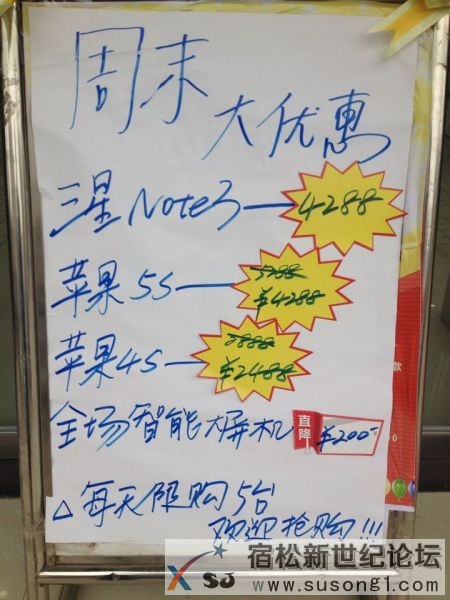 周末
大优惠
三星Note3—4288
5288
苹果5S—¥4288
苹果4S—¥2488
全场智能大屏机 直降 ¥200
△每天限购5台
欢迎抢购!!!
X SJ
宿松新世纪论坛
www.susong1.com